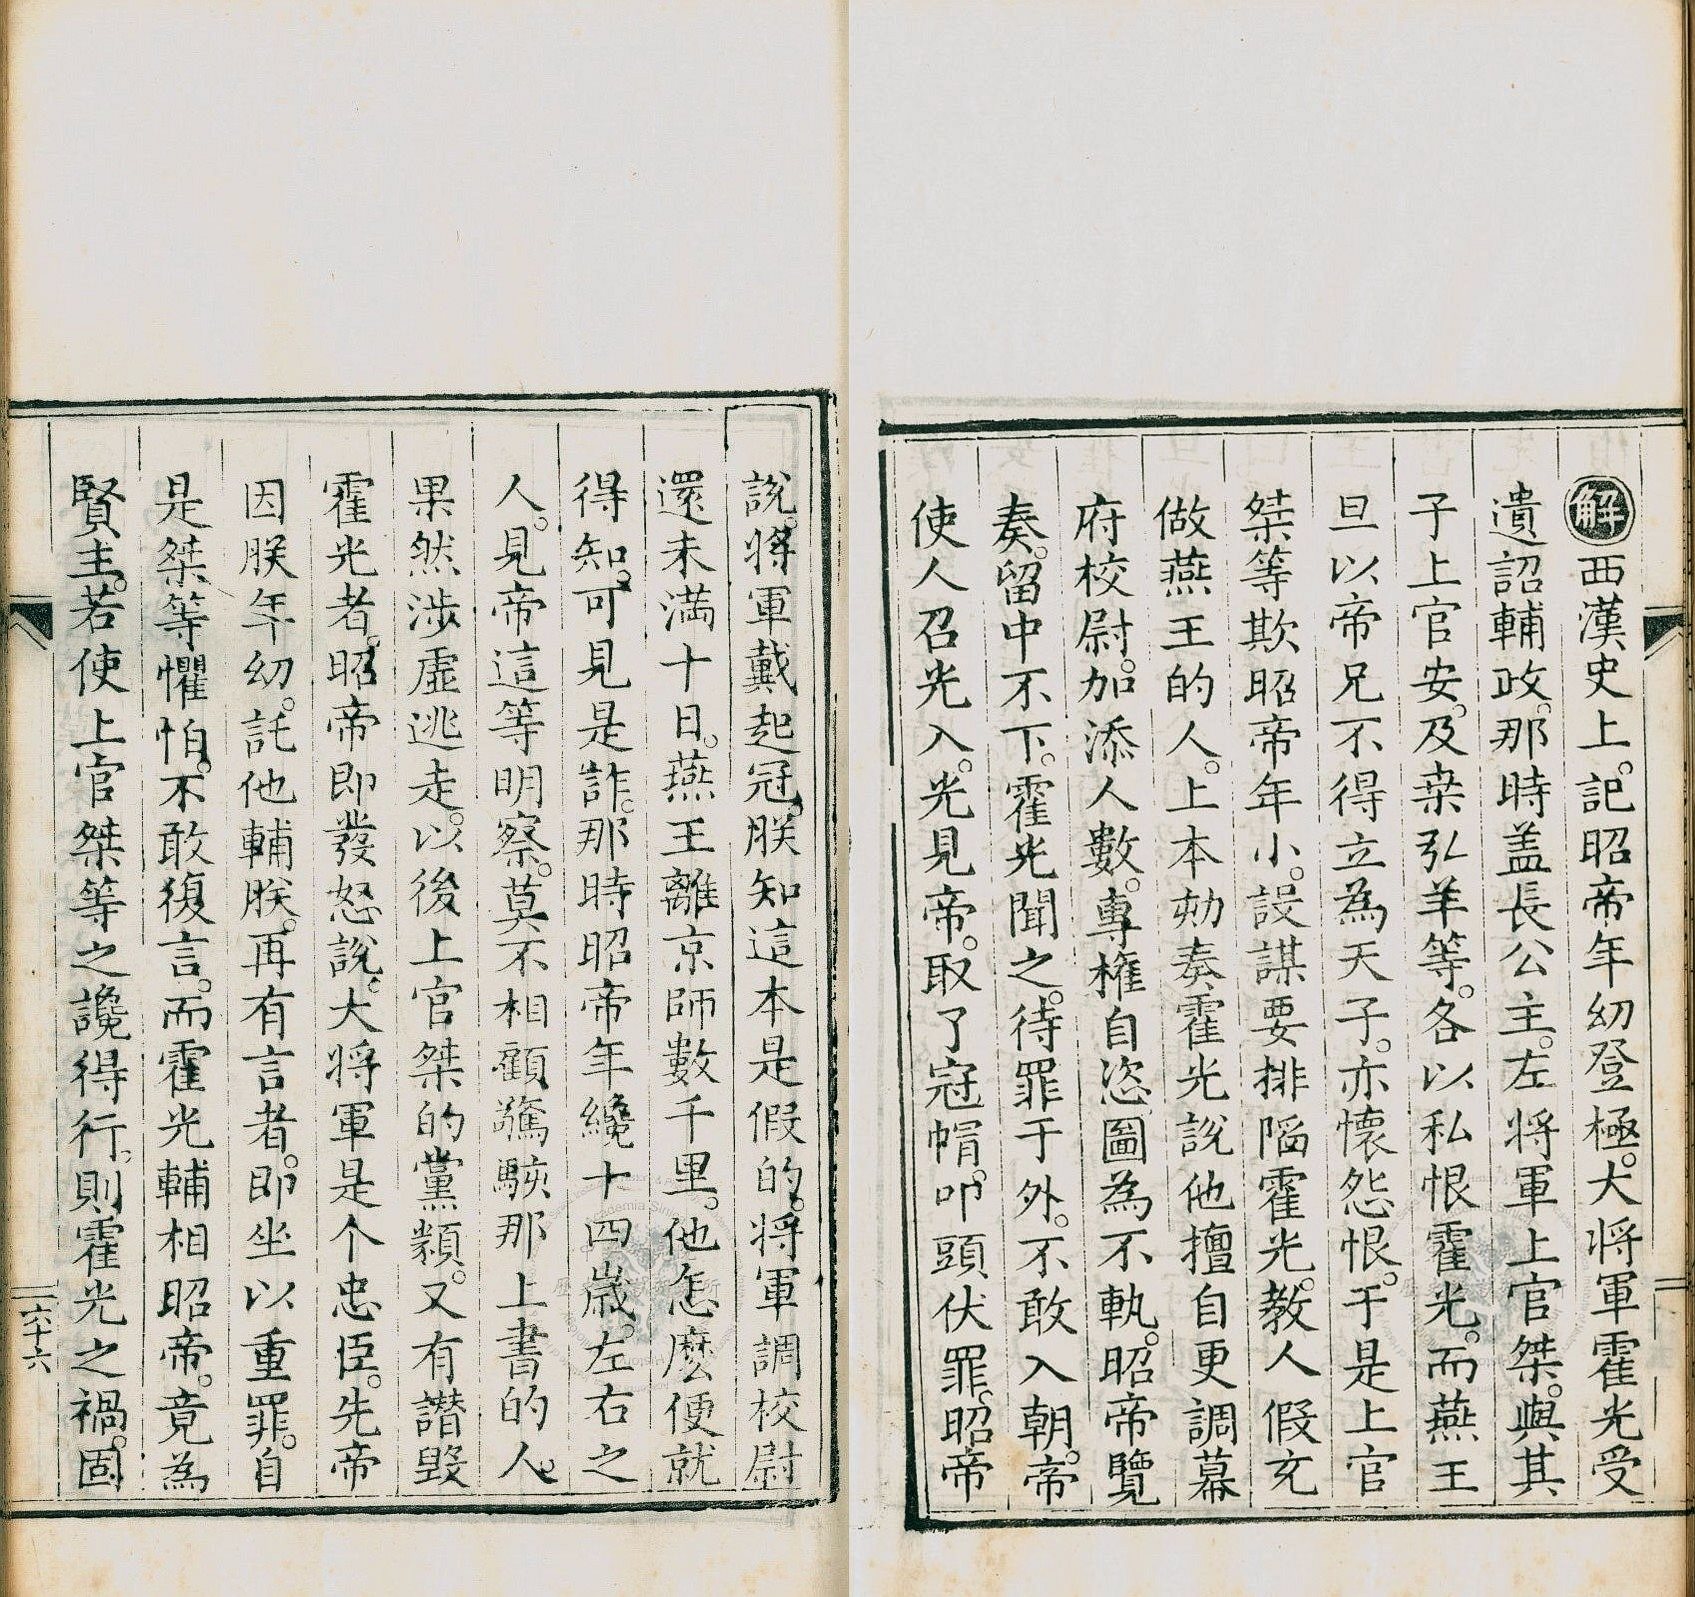 解西漢史上。記昭帝年幼登極。大将軍霍光受
遺詔輔政。那時盖長公主。左将軍上官桀。與其
子上官安。及桒弘羊等。各以私恨霍光。而燕王
旦以帝兄不得立為天子。亦懷怨恨。于是上官
桀等欺昭帝年小。設謀要排陷霍光。教人假充
做燕王的人。上本劾奏霍光說他擅自更調幕
府校尉。加添人數。專權自恣圖為不軌。昭帝覽
奏。留中不下。霍光聞之。待罪于外。不敢入朝。帝
使人召光入。光見帝。取了冠帽。叩頭伏罪。昭帝
說。将軍戴起冠。朕知這本是假的。将軍調校尉
還未滿十日。燕王離京師數千里。他怎麽便就
得知。可見是詐。那時昭帝年纔十四歲。左右之
人。見帝這等明察。莫不相顧驚駭那上書的人。
果然涉虛逃走。以後上官桀的黨類。又有譖毀
霍光者。昭帝即發怒說。大将軍是个忠臣。先帝
因朕年幼。託他輔朕。再有言者。即坐以重罪。自
是桀等懼怕。不敢復言。而霍光輔相昭帝。竟為
賢主。若使上官桀等之讒得行。則霍光之禍。固
六十六